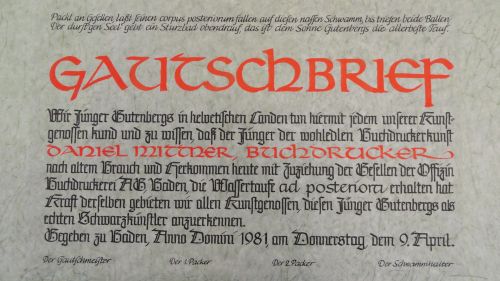 Packt an Gesellen, laßt seinen corpus posteriorum fallen auf diesen nassen Schwamm, bis triefen beide Ballen.
Der durst'gen Seel' gebt ein Sturzbad obendrauf, das ist dem Sohne Gutenbergs die allerbeste Tauf.
GAUTSCHBRIEF
Wir Jünger Gutenbergs in helvetischen Landen tun hiermit jedem unserer Kunst-
genossen kund und zu wissen, daß der Jünger der wohledlen Buchdruckerkunst
DANIEL MITTNER, BUCHDRUCKER
nach altem Brauch und Herkommen heute mit Zuziehung der Gesellen der Offizin
Buchdruckerei AG Baden, die Wassertaufe ad posteriora erhalten hat
Kraft derselben gebieten wir allen Kunstgenossen, diesen Jünger Gutenbergs als
echten Schwarzkünstler anzuerkennen.
Gegeben zu Baden, Anno Domini 1981, am Donnerstag, dem 9. April.
Der Gautschmeister Der 1. Packer Der 2. Packer Der Schwammhalter